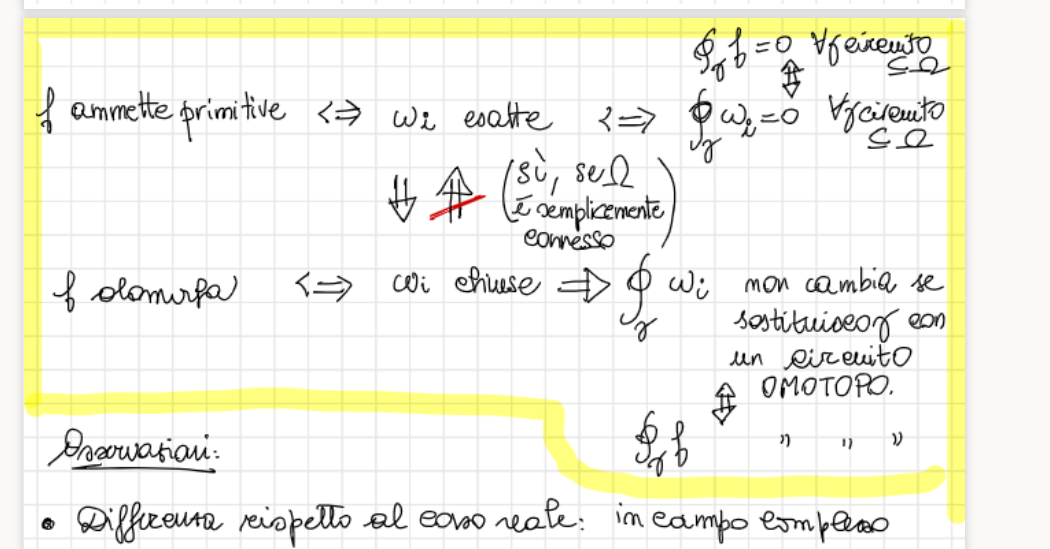 ∮_γ f = 0 ∀γ circuito ⊆ Ω
⇕
f ammette primitive <=> ωi esatte <=> ∮_γ ωi = 0 ∀γ circuito ⊆ Ω
⇓ ⇑ (sì, se Ω
è semplicemente
connesso)
f olomorfa <=> ωi chiuse ⇒ ∮_γ ωi non cambia se
sostituisco γ con
un circuito
OMOTOPO.
⇕
∮_γ f " " "
Osservazioni:
• Differenza rispetto al caso reale: in campo complesso